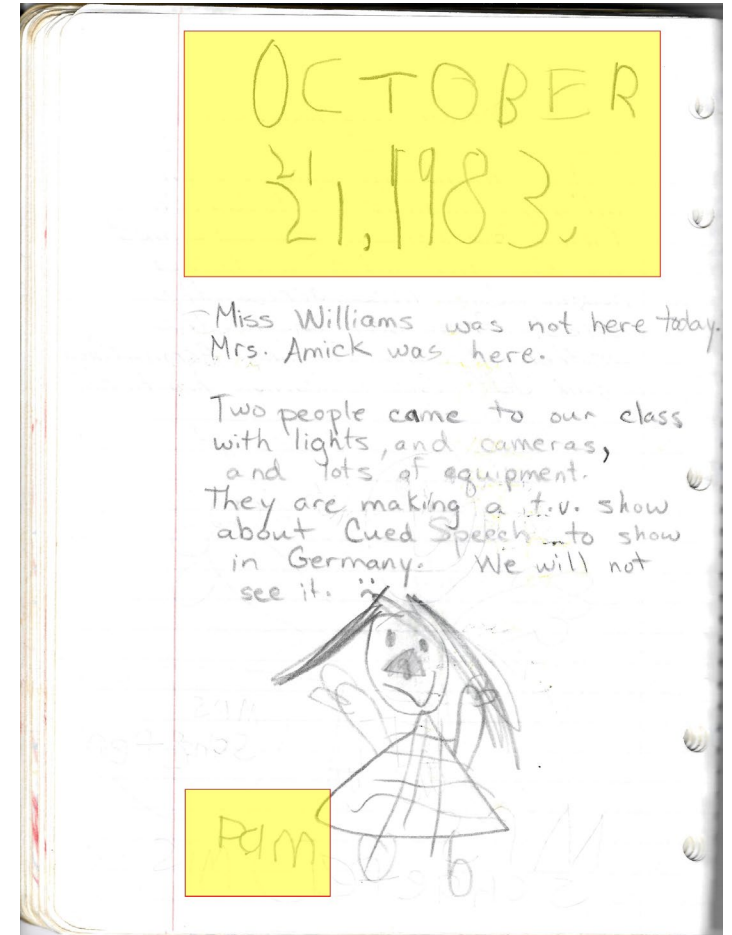 OCTOBER
21
21, 1983.
Miss Williams was not here today.
Mrs. Amick was here.
Two people came to our class
with lights, and cameras,
and lots of equipment.
They are making a t.v. show
about Cued Speech to show
in Germany. We will not
see it. :(
Pam